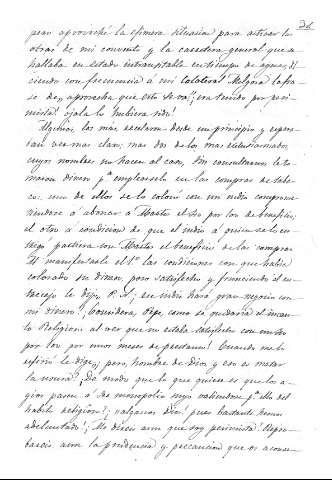 pero aproveché la efímera situacion para activar las
obras de mi convento y la carretera general que se
hallaba en estado intransitable en tiempo de aguas, di
ciendo con frecuencia á mi Calatrava Melgar la fra
se de, aprovecha que esto se va"; era tenido por pesi
mista! ojala lo hubiera sido!
Algunos, los mas decitaron desde un principio y espera
ban ver mas claro; mas dos de los mas entusiasmados,
cuyos nombres no hacen al caso, sin consultarme le to
maron dinero pª emplearselo en las compras de taba
co: uno de ellos se lo colocó con un indio comprome
tiendose á abonar á Martes el seis por los de beneficio;
el otro á condicion de que el indio á quien se lo en
tregó partiera con Martes el beneficio de las compras
Al manifestarle el 1º las condiciones con que habia
colocado su dinero, poco satisfecho y frunciendo el en
trecejo le dijo, P. A.; ese indio hará gran negocio con
mi dinero! Considera, dige, como se quedaria el incau
to Religioso al ver que no estaba satisfecho con un seis
por los por unos meses de prestamo! Cuando me lo
refirió le dige; pero, hombre de Dios y eso es matar
la usura? De modo que lo que quiere es que los a
gios pasen á ser monopolio suyo valiendose pª ello del
habito religioso!; valganos Dios! pues bastante hemos
adelantado! Me direis aun que soy pesimista! Repro
bareis aun la prudencia y precaucion que os aconse